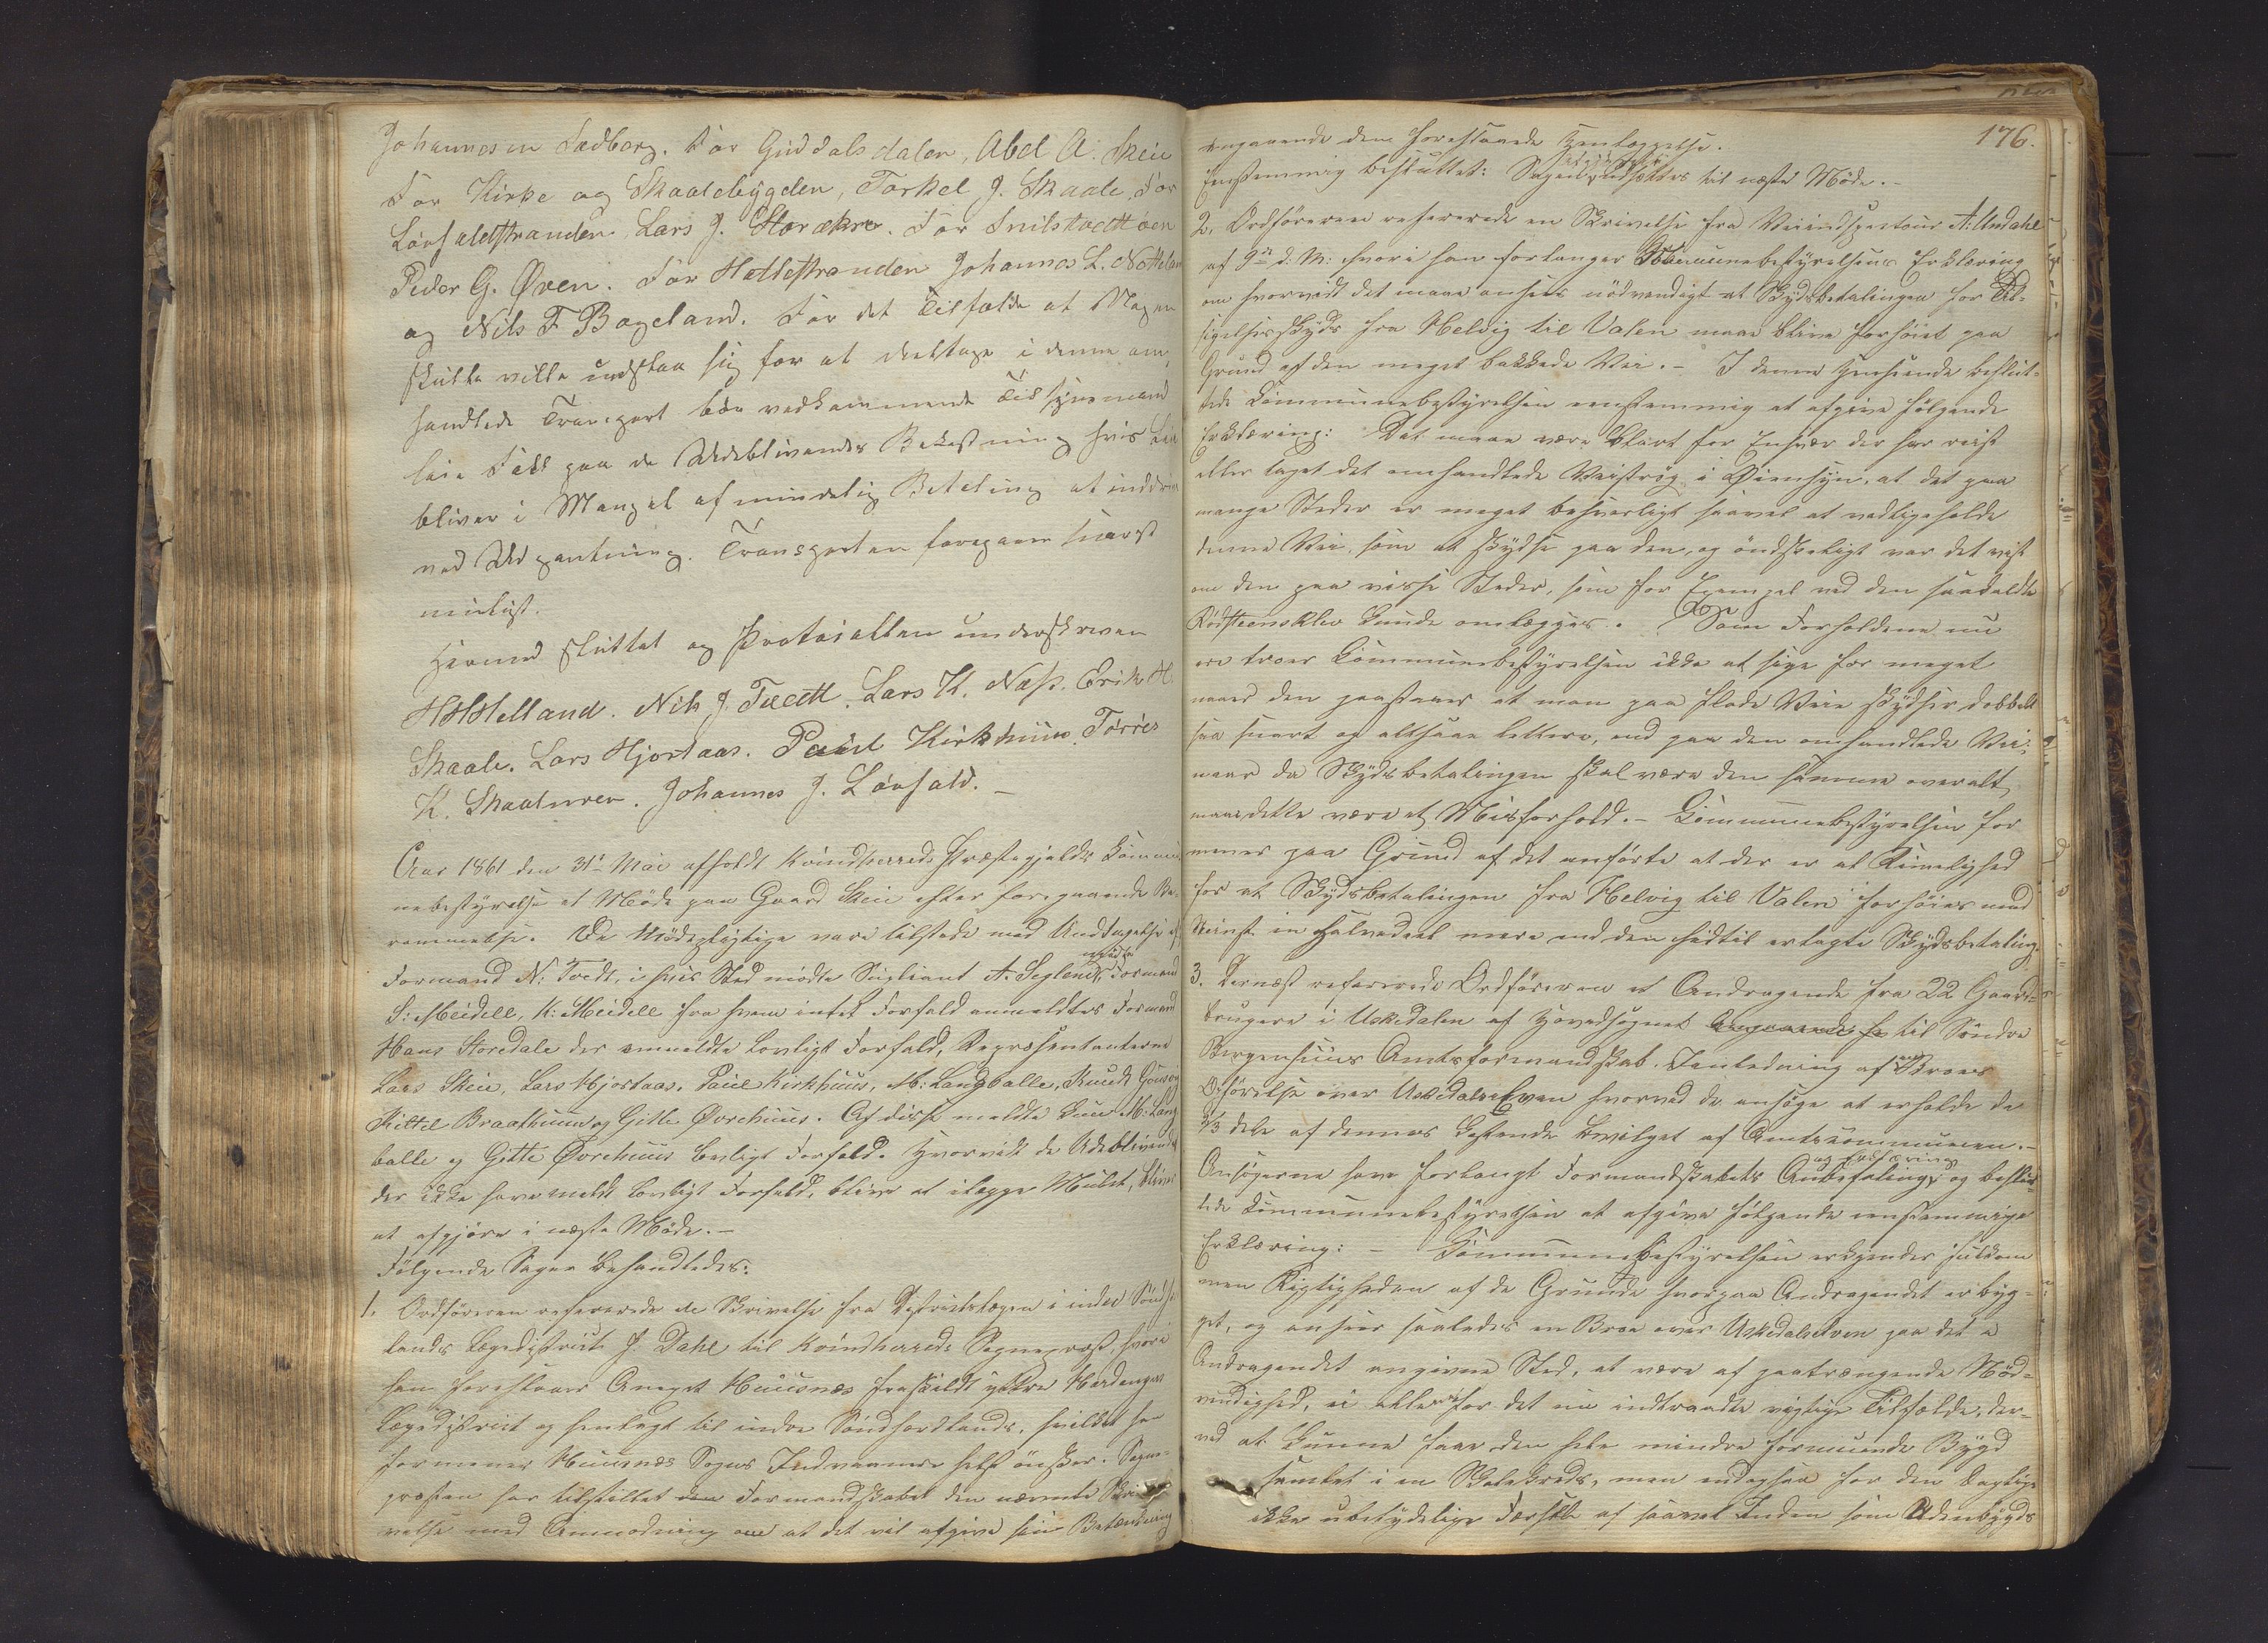 Johannesen Sædberg. For Guddalsdalen, Abel A. Skeie
For Kirke og Skaalebygden, Torkel J. Skaale, For
Løvfaldstranden Lars J. Storækre. For Snilstvedtøen
Peder G. Øven. For Hatlestranden Johannes L. Nøtteland
og Nils T Bogeland. For det Tilfælde at Nogen
skulde ville undslaa sig for at deeltage i denne om
handlede Transport bør vedkommende Tilsynsmand
leie Folk paa de Udeblivendes Bekostning hvis Leie
bliver i Mangel af mindelig Betaling at inddrive
ved Udpantning. Transporten foregaar snarest
muligst.
Hermed sluttet og Protocollen underskreven
HHHelland. Nils J. Tvedt. Lars K. Næss. Erik H.
Skaale. Lars Hjortaas. Paul Kirkhuus. Tørris
K. Skaaluren. Johannes J. Løvfald. –
Aar 1861 den 31te Mai afholdt Kvindherreds Præstegjelds Commu
nebestyrelse et Møde paa Gaard Skeie efter foregaaende Be
rammelse. De Mødepligtige vare tilstede med Undtagelse af
Formand N: Tvedt, i hvis Sted mødte Supleant A. Seglem, Formand
S: Meidell, K: Meidell fra hvem intet Forfald anmeldtes Formand
Hans Storedale der anmeldte lovligt Forfald, Repræsentanterne
Lars Skeie, Lars Hjortaas, Paul Kirkhuus, M: Landballe, Knudt Gousvog
Kittil Braathuun og Gitle Øvrehuus. Af disse meldte kun M: Land
balle og Gitle Øvrehuus lovligt Forfald. Hvorvidt de Udeblivende
der ikke have meldt lovligt Forfald, bliver at ilægge Mulct, bliver
at afgjøre i næste Møde. –
Følgende Sager behandledes:
1. Ordføreren refererede en Skrivelse fra Districtslægen i indre Søndhord
lands Lægedistrict J. Dahl til Kvindherreds Sognepræst, hvori
han foreslaaer Annexet Huusnæs fraskildt ydtre Hardangers
Lægedistrict og henlagt til indre Søndhordlands, hvilket han
formener Huusnæs Sogns Indvaanere helst ønsker. Sogne-
præsten har tilstillet Formandskabet den nævnte Skri-
velse med Anmodning om at det vil afgive sin Betænkning
176.
angaaende den foreslaaede Henlæggelse.
Eenstemmig besluttet: Sagen udsættes til næste Møde. –
2. Ordføreren refererede en Skrivelse fra Veiinspecteur A: Undahl
af 9de d. M: hvori han forlanger Communebestyrelsens Erklæring
om hvorvidt det maae ansees nødvendigt at Skydsbetalingen for Til-
sigelsesskyds fra Helvig til Valen maae blive forhøiet paa
Grund af den meget bakkede Vei. – I denne Henseende beslut-
tede Communebestyrelsen eenstemmig at afgive følgende
Erklæring: Det maae være klart for Enhver der har reist
eller taget det omhandlede Veistrøg i Øiensyn, at det paa
mange Steder er meget besværligt saavel at vedligeholde
denne Vei, som at skydse paa den, og ønskeligt var det vist
om den paa visse Steder, som for Exempel ved den saakaldte
Rødsteensklev kunde omlægges. Som Forholdene nu
ere troer Communebestyrelsen ikke at sige for meget
naar den paastaaer at man paa flade Veie skydser dobbelt
saa snart og altsaa lettere, end paa den omhandlede Vei;
naar da Skydsbetalingen skal være den samme overalt,
maae dette være et Misforhold. – Communebestyrelsen for
mener paa Grund af det anførte at der er al Rimelighed
for at Skydsbetalingen fra Helvig til Valen forhøies med
mindst en Halvdeel mere end den hidtil erlagte Skydsbetaling.
3. Dernæst refererede Ordføreren et Andragende fra 22 Gaard-
brugere i Uskedalen af Hovedsognet til Søndre
Bergenhuus Amtsformandskab. I Anledning af en Broes
Opførelse over Uskedalselven hvorved de ansøge at erholde de
2/3 dele af dennes Kostende bevilget af Amtscommunen. –
Ansøgerne have forlangt Formandskabets Anbefaling og Erklæring og beslut-
tede Communebestyrelsen at afgive følgende eenstemmige
Erklæring: – Communebestyrelsen erkjender fuldkom
men Rigtigheden af de Grunde hvorpaa Andragendet er byg-
get, og anseer saaledes en Broe over Uskedalselven paa det i
Andragendet angivne Sted, at være af paatrængende Nød-
vendighed, ei alene for det nu indtraadte vigtige Tilfælde, der-
ved at kunne faae den hele mindre formuende Bygd
samlet i en Skolekreds, men endogsaa for den daglige
ikke ubetydelige Færsel af saavel Inden som Udenbygds